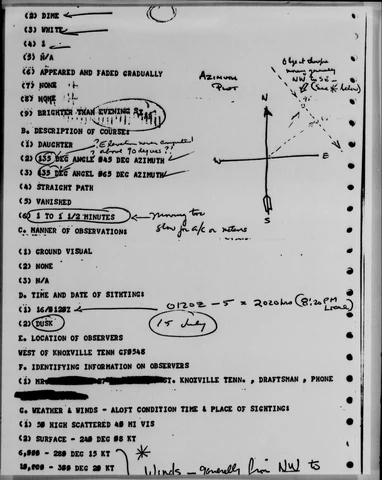 (2) DIME
(3) WHITE
(4) 1
(5) N/A
(6) APPEARED AND FADED GRADUALLY
(7) NONE
(8) NONE
(9) BRIGHTER THAN EVENING STAR
B. DESCRIPTION OF COURSE:
(1) DAUGHTER
? Elevation
above 90 degrees??
(2) 135 DEG ANGLE 045 DEG AZIMUTH
(3) 435 DEG ANGEL 065 DEG AZIMUTH
(4) STRAIGHT PATH
(5) VANISHED
(6) 1 TO 1 1/2 MINUTES
moving too
slow for a/c or meteors
AZIMUTH
PLOT
Object
moving generally
NW to SE
(see * below)
N
E
S
C. MANNER OF OBSERVATION:
(1) GROUND VISUAL
(2) NONE
(3) N/A
D. TIME AND DATE OF SITHTING:
(1) 16/0120Z
0120Z - 5 = 2020 hrs (8:20 PM
Local)
(2) DUSK
15 July
E. LOCATION OF OBSERVERS
WEST OF KNOXVILLE TENN GF0548
F. IDENTIFYING INFORMATION ON OBSERVERS
(1) MR ST. KNOXVILLE TENN., DRAFTSMAN, PHONE
G. WEATHER & WINDS - ALOFT CONDITION TIME & PLACE OF SIGHTING:
(1) 50 HIGH SCATTERED 40 MI VIS
(2) SURFACE - 240 DEG 08 KT
6,000 - 280 DEG 15 KT
*
10,000 - 300 DEG 20 KT
Winds - generally from NW to